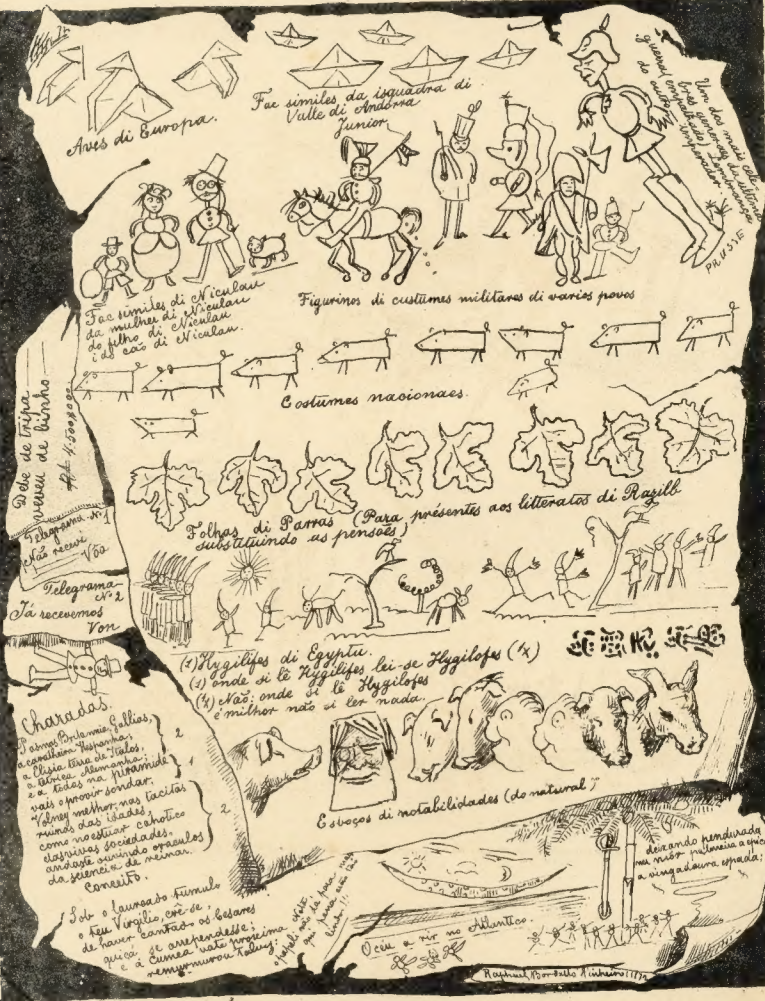 Aves di Europa.
Fac similes da isquadra di
Valle di Andorra
Junior
Um dos mais cele-
bres generaes du ultimo
guerra (empalhado) Lembrança
do imperador.
PRUSSIE
Fac similes di Niculau
da mulher di Niculau
do filho di Niculau
i do cão di Niculau.
Figurinos di custumes militares di varios povos
Costumes nacionaes.
Debe de tripa
veveu de linho
Folhas di Parras (Para présentes aos litteratos di Razilb
substituindo as pensões)
Telegrama Nº 1
Não recevi
Vôa
Telegrama
Nº 2
Já recevemos
Von
(1) Hygilifes di Egyptu.
(1) onde si lê Hygilifes lei-se Hygilofes (1x)
(x) Não: onde si lê Hygilofes
é milhor não si ler nada.
Charadas.
Pasma Britannia, Gallias,
a cavalheira Hespanha,
a Elisia terra de Italos,
a Alemanha;
e a todos na piramide
vais o provir sondar.
Volney melhor, nas tacitas
ruinas das idades,
como no estuar cahotico
das vivas sociedades,
andaste ouvindo oraculos
da sciencia de reinar.
2
1
2
Conceito.
Sob o laureado tumulo
o teu Virgilio, crê-se,
de haver cantado os Cesares
quiçá se arrependesse;
e á Cumea vate proxima
remurmurou talvez:
Esboços di notabilidades (do natural)
deixando pendurada
a vingadoura espada;
O ceu a rir no Atlantico.
Raphael Bordallo Pinheiro